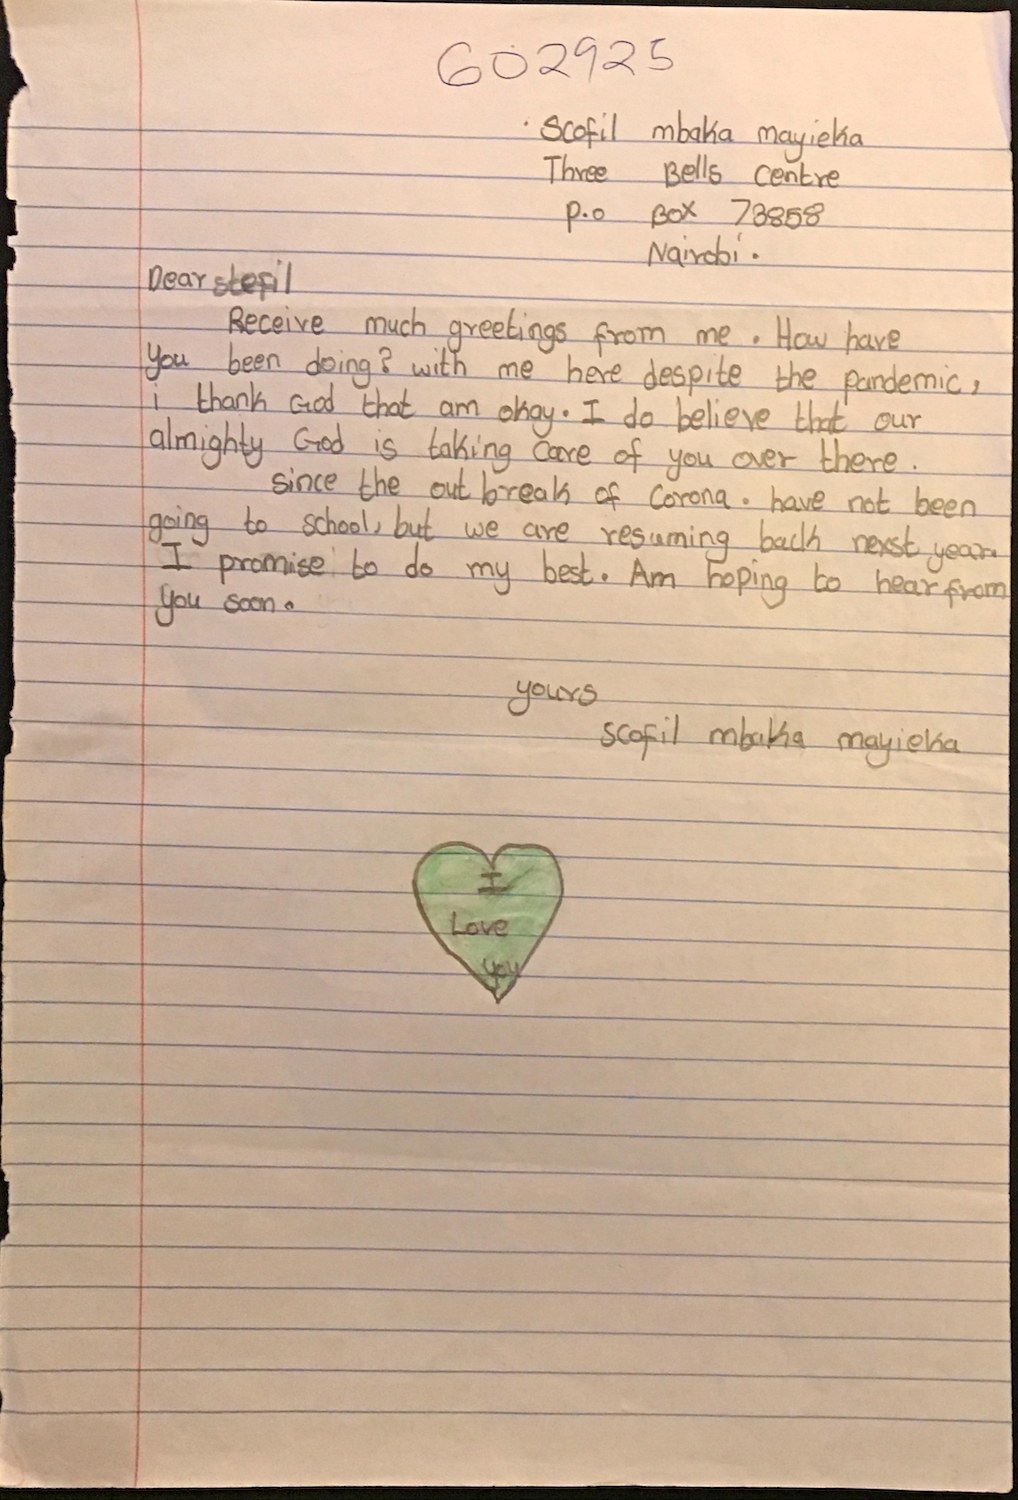 602925
Scofil mbaka mayieka
Three Bells Centre
P.o Box 73858
Nairobi.
Dear stefil
Receive much greetings from me. How have
you been doing? with me here despite the pandemic,
i thank God that am okay. I do believe that our
almighty God is taking care of you over there.
since the out break of corona. have not been
going to school, but we are resuming back nexst year.
I promise to do my best. Am hoping to hear from
you soon.
yours
scofil mbaka mayieka
I
Love
you